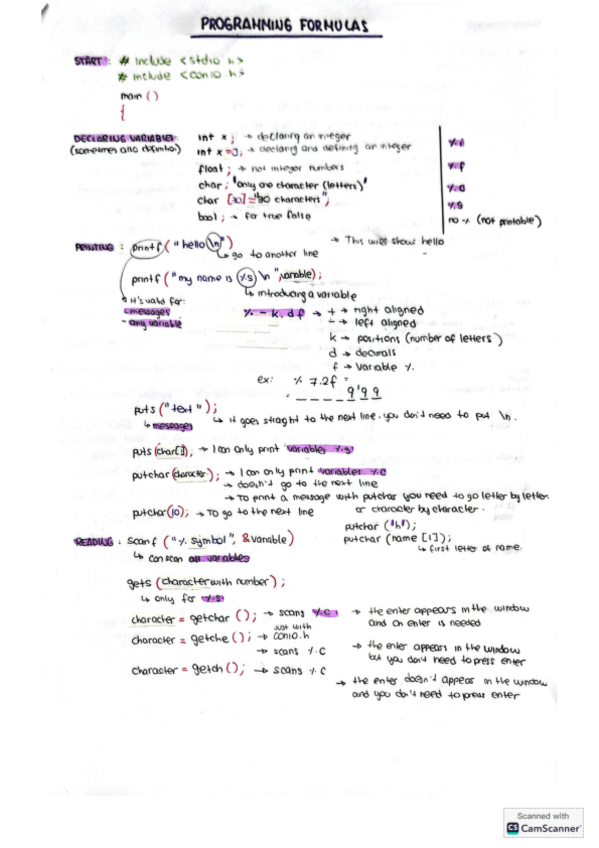 PROGRAMMING FORMULAS
START: # include <stdio h>
# include <conio.h>
main ()
{
DECLARING VARIABLES
(sometimes also definition)
int x ; → declaring an integer
int x=3; → declaring and defining an integer
float ; → not integer numbers
char ; "only one character (letters)"
char [30] = "30 characters";
bool ; → for true false
%i
%f
%c
%s
no % (not printable)
PRINTING : printf ("hello \n") → This will show hello
↳ go to another line
printf ("my name is %s \n", variable);
↳ introducing a variable
↳ it's valid for:
- messages
- any variable
% - k. d f → + → right aligned
- → left aligned
k → positions (number of letters)
d → decimals
f → variable %.
ex: % 7.2f =
= _ _ _ _ 9'99
puts ("text"); ↳ it goes straight to the next line. you don't need to put \n.
↳ messages
puts (char[]); → I can only print variables %s
putchar (character); → I can only print variables %c
→ doesn't go to the next line
→ To print a message with putchar you need to go letter by letter
or character by character.
putchar(10); → To go to the next line
putchar ('h');
putchar (name [1]);
↳ first letter of name
READING : scanf ("% symbol", &variable)
↳ can scan all variables
gets (character with number);
↳ only for %s
character = getchar (); → scans %c → the enter appears in the window
and an enter is needed
character = getche (); → just with conio.h
→ scans %c → the enter appears in the window
but you don't need to press enter
character = getch (); → scans %c → the enter doesn't appear in the window
and you don't need to press enter
Scanned with
CS CamScanner